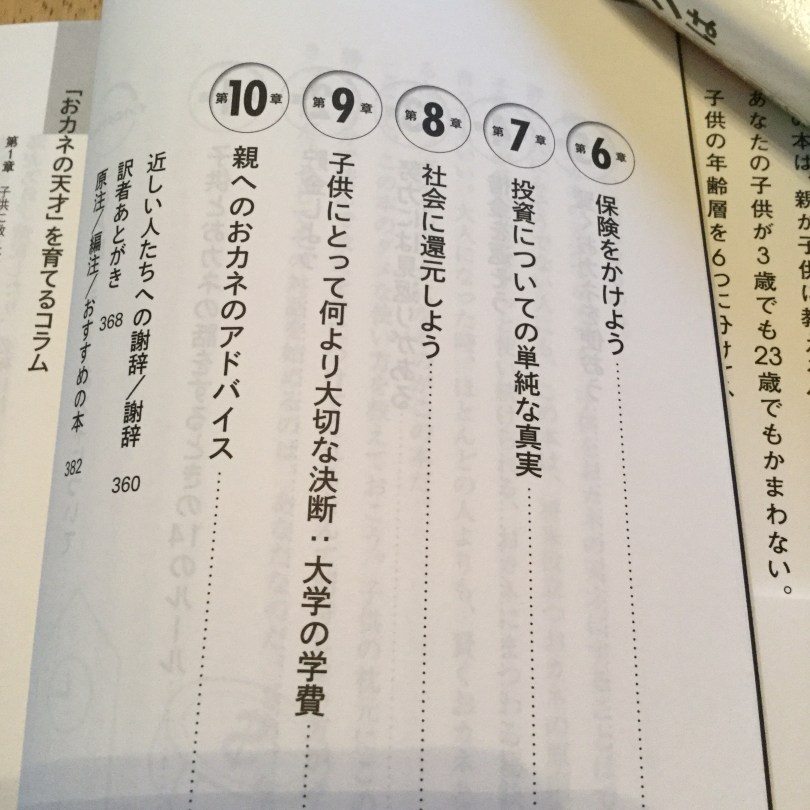 あなたの子供が3歳でも23歳でもかまわない。
子供の年齢層を6つに分けて、
第6章 保険をかけよう
第7章 投資についての単純な真実
第8章 社会に還元しよう
第9章 子供にとって何より大切な決断：大学の学費
第10章 親へのおカネのアドバイス
近しい人たちへの謝辞/謝辞 360
訳者あとがき 368
原注/編注/おすすめの本 382
「おカネの天才」を育てるコラム
第1章